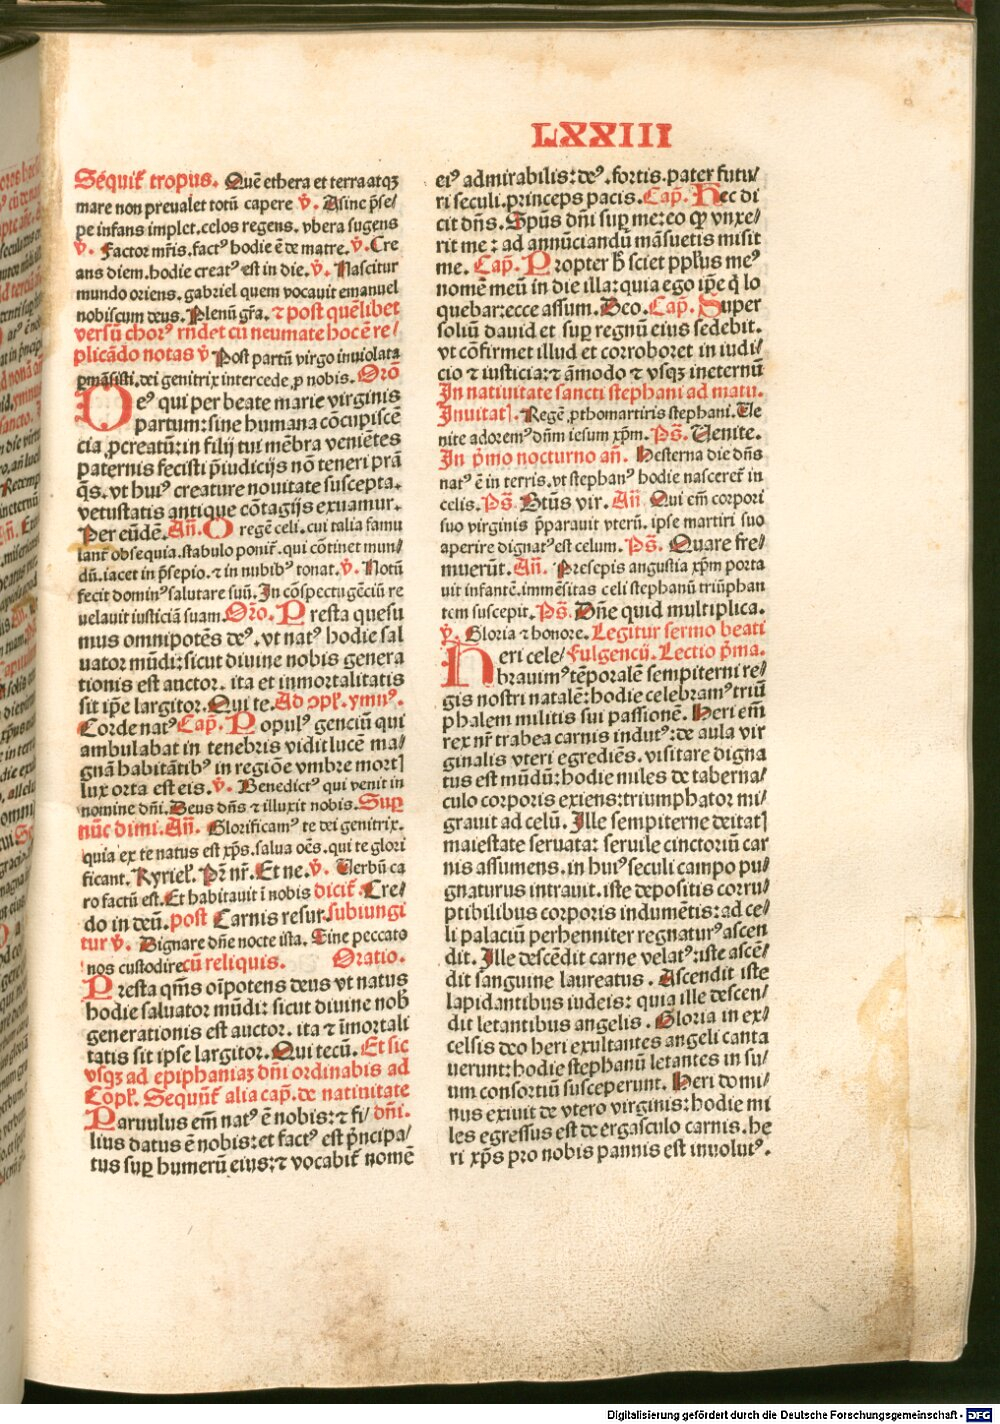 LXXIII
Sequit᷑ tropus. Quē ethera et terra atqꝫ
mare non preualet totū capere ℣. Asine p̄se⸗
pe infans implet. celos regens. vbera sugens
℣. Factor mr̄is. factꝰ hodie ē de matre. ℣. Cre
ans diem. hodie creatꝰ est in die. ℣. Nascitur
mundo oriens. gabriel quem vocauit emanuel
nobiscum deus. Plenū gr̄a. ⁊ post quēlibet
versū chorꝰ rn̄det cū neumate hoc ē re⸗
plicādo notas ℣ Post partū virgo inuiolata
ꝑmāsisti. dei genitrix intercede ꝓ nobis. Oro
Deꝰ qui per beate marie virginis
partum: sine humana cōcupiscē
cia ꝓcreatū: in filij tui mēbra veniētes
paternis fecisti p̄iudicijs nō teneri prā
qs̄. vt huiꝰ creature nouitate suscepta.
vetustatis antique cōtagijs exuamur.
Per eūdē. Añ. O regē celi. cui talia famu
lant᷑ obsequia. stabulo ponit᷑. qui cōtinet mun⸗
dū. iacet in p̄sepio. ⁊ in nubibꝰ tonat. ℣. Notū
fecit dominꝰ salutare suū. In cōspectu gēciū re
uelauit iusticiā suam. Oro. Presta quesu
mus omnipotēs deꝰ. vt natꝰ hodie sal
uator mūdi: sicut diuine nobis genera
tionis est auctor. ita et inmortalitatis
sit ip̄e largitor. Qui te. Ad ↄpl̕. ymnꝰ.
Corde natꝰ Cap̄. Populꝰ genciū qui
ambulabat in tenebris vidit lucē ma⸗
gnā habitātibꝰ in regiōe vmbre mort᷑
lux orta est eis. ℣. Benedictꝰ qui venit in
nomine dn̄i. Deus dn̄s ⁊ illuxit nobis. Suꝑ
nūc dimi. Añ. Glorificamꝰ te dei genitrix.
quia ex te natus est xp̄s. salua oēs. qui te glori
ficant. Kyriel̕. Pr̄ nr̄. Et ne. ℣. Verbū ca
ro factū est. Et habitauit ī nobis dicit᷑ Cre⸗
do in deū. post Carnis resur. subiungi
tur ℣. Dignare dn̄e nocte ista. Sine peccato
nos custodire cū reliquis. Oratio.
Presta qm̄s oīpotens deus vt natus
hodie saluator mūdi: sicut diuine nob̄
generationis est auctor. ita ⁊ īmortali
tatis sit ipse largitor. Qui tecū. Et sic
vsqꝫ ad epiphaniaꝫ dn̄i ordinabis ad
Cōpl̕. Sequūt᷑ alia cap̄. de natiuitate
Paruulus em̄ natꝰ ē nobis: ⁊ fi⸗ dn̄i.
lius datus ē nobis: et factꝰ est p̄ncipa⸗
tus suꝑ humerū eius: ⁊ vocabit᷑ nomē
eiꝰ admirabilis: deꝰ. fortis. pater futu⸗
ri seculi. princeps pacis. Cap̄. Hec di
cit dn̄s. Spūs dn̄i suꝑ me: eo ꝙ vnxe⸗
rit me: ad annūciandū māsuetis misit
me. Cap̄. Propter h̄ sciet pplus meꝰ
nomē meū in die illa: quia ego ip̄e qͥ lo
quebar: ecce assum. Deo. Cap̄. Super
soliū dauid et suꝑ regnū eius sedebit.
vt cōfirmet illud et corroboret in iudi⸗
cio ⁊ iusticia: ⁊ āmodo ⁊ vsqꝫ ineternū
In natiuitate sancti stephani ad matu.
Inuitat᷑. Regē ꝓthomartiris stephani. Ve
nite adoremꝰ dn̄m iesum xp̄m. Ps̄. Venite.
In p̄mo nocturno añ. Hesterna die dn̄s
natꝰ ē in terris. vt stephanꝰ hodie nasceret᷑ in
celis. Ps̄. Btūs vir. Añ Qui em̄ corpori
suo virginis p̄parauit vterū. ipse martiri suo
aperire dignatꝰ est celum. Ps̄. Quare fre⸗
muerūt. Añ. Presepis angustia xp̄m porta
uit infantē. immēsitas celi stephanū triūphan
tem suscepit. Ps̄. Dn̄e quid multiplica.
℣. Gloria ⁊ honore. Legitur sermo beati
Heri cele⸗ fulgencij. Lectio p̄ma.
brauimꝰ tēporalē sempiterni re⸗
gis nostri natalē: hodie celebramꝰ triū
phalem militis sui passionē. Heri em̄
rex nr̄ trabea carnis indutꝰ: de aula vir
ginalis vteri egrediēs. visitare digna
tus est mūdū: hodie miles de taberna⸗
culo corporis exiens: triumphator mi⸗
grauit ad celū. Ille sempiterne deitat᷑
maiestate seruata: seruile cinctoriū car
nis assumens. in huiꝰ seculi campo pu⸗
gnaturus intrauit. iste depositis corru⸗
ptibilibus corporis indumētis: ad ce⸗
li palaciū perhenniter regnaturꝰ ascen
dit. Ille descēdit carne velatꝰ: iste ascē⸗
dit sanguine laureatus. Ascendit iste
lapidantibus iudeis: quia ille descen⸗
dit letantibus angelis. Gloria in ex⸗
celsis deo heri exultantes angeli canta
uerunt: hodie stephanū letantes in su⸗
um consortiū susceperunt. Heri domi⸗
nus exiuit de vtero virginis: hodie mi
les egressus est de ergasculo carnis. he
ri xp̄s pro nobis pannis est inuolutꝰ.
Digitalisierung gefördert durch die Deutsche Forschungsgemeinschaft - DFG